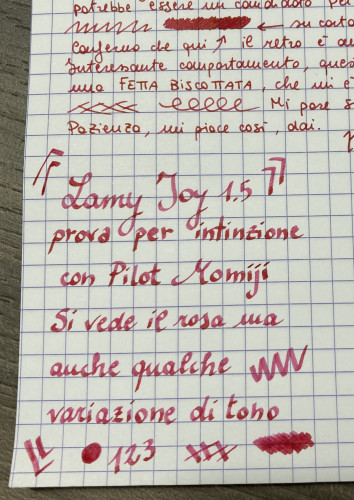 potrebbe essere un candidato per
su carta
Confermo che qui ↗ il retro è
interessante comportamento, ques
una FETTA BISCOTTATA, che mi è
Mi pare
Pazienza, mi piace così, dai.
Lamy Joy 1.5
prova per intinzione
con Pilot Momiji
Si vede il rosa ma
anche qualche
variazione di tono
123